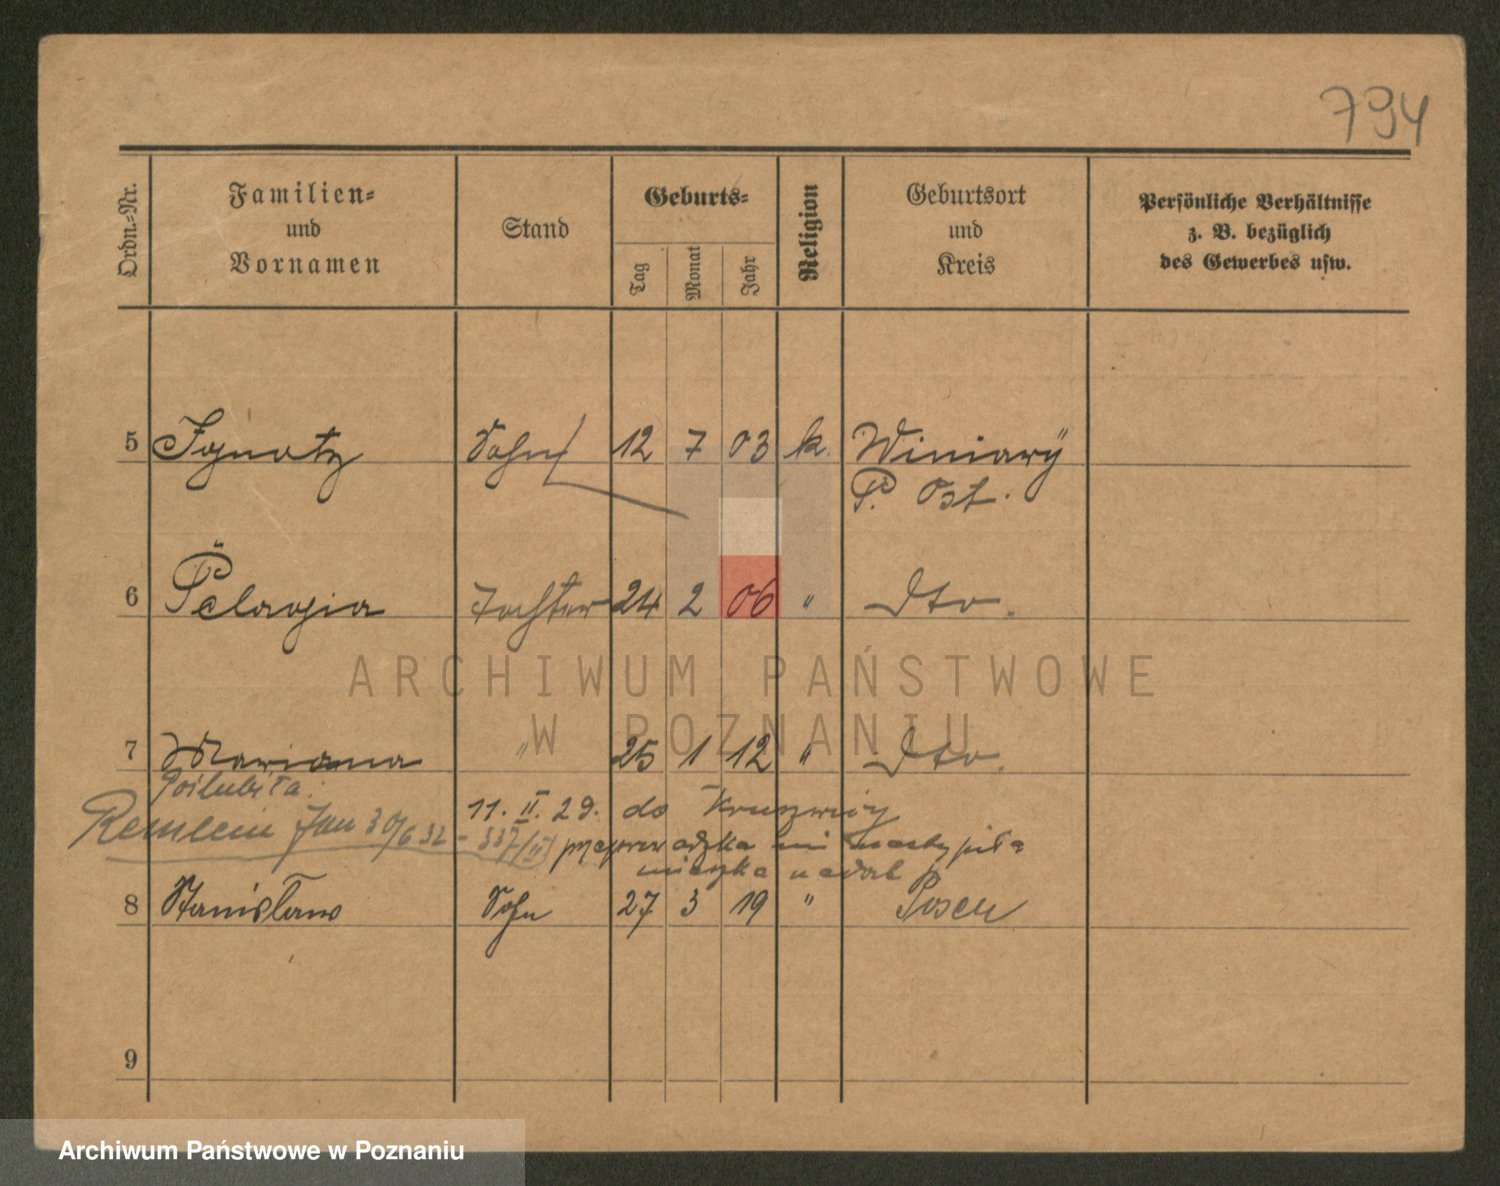 794
Ordn.-Nr.
Familien-
und
Vornamen
Stand
Geburts-
Tag
Monat
Jahr
Religion
Geburtsort
und
Kreis
Persönliche Verhältnisse
z. B. bezüglich
des Gewerbes usw.
5 Ignatz Sohn 12 7 03 k. Winiary
P. Ost.
6 Pelagia Tochter 24 2 06 " Dto.
ARCHIWUM PAŃSTWOWE
W POZNANIU
7 Marianna " 25 1 12 " Dto.
Poślubiła:
11. II. 29. do Kruszwicy
Remlein Jan 30/6 32 - 337/II
przeprowadzka nie nastąpiła
mieszka nadal
8 Stanisław Sohn 27 3 19 " Posen
9
Archiwum Państwowe w Poznaniu